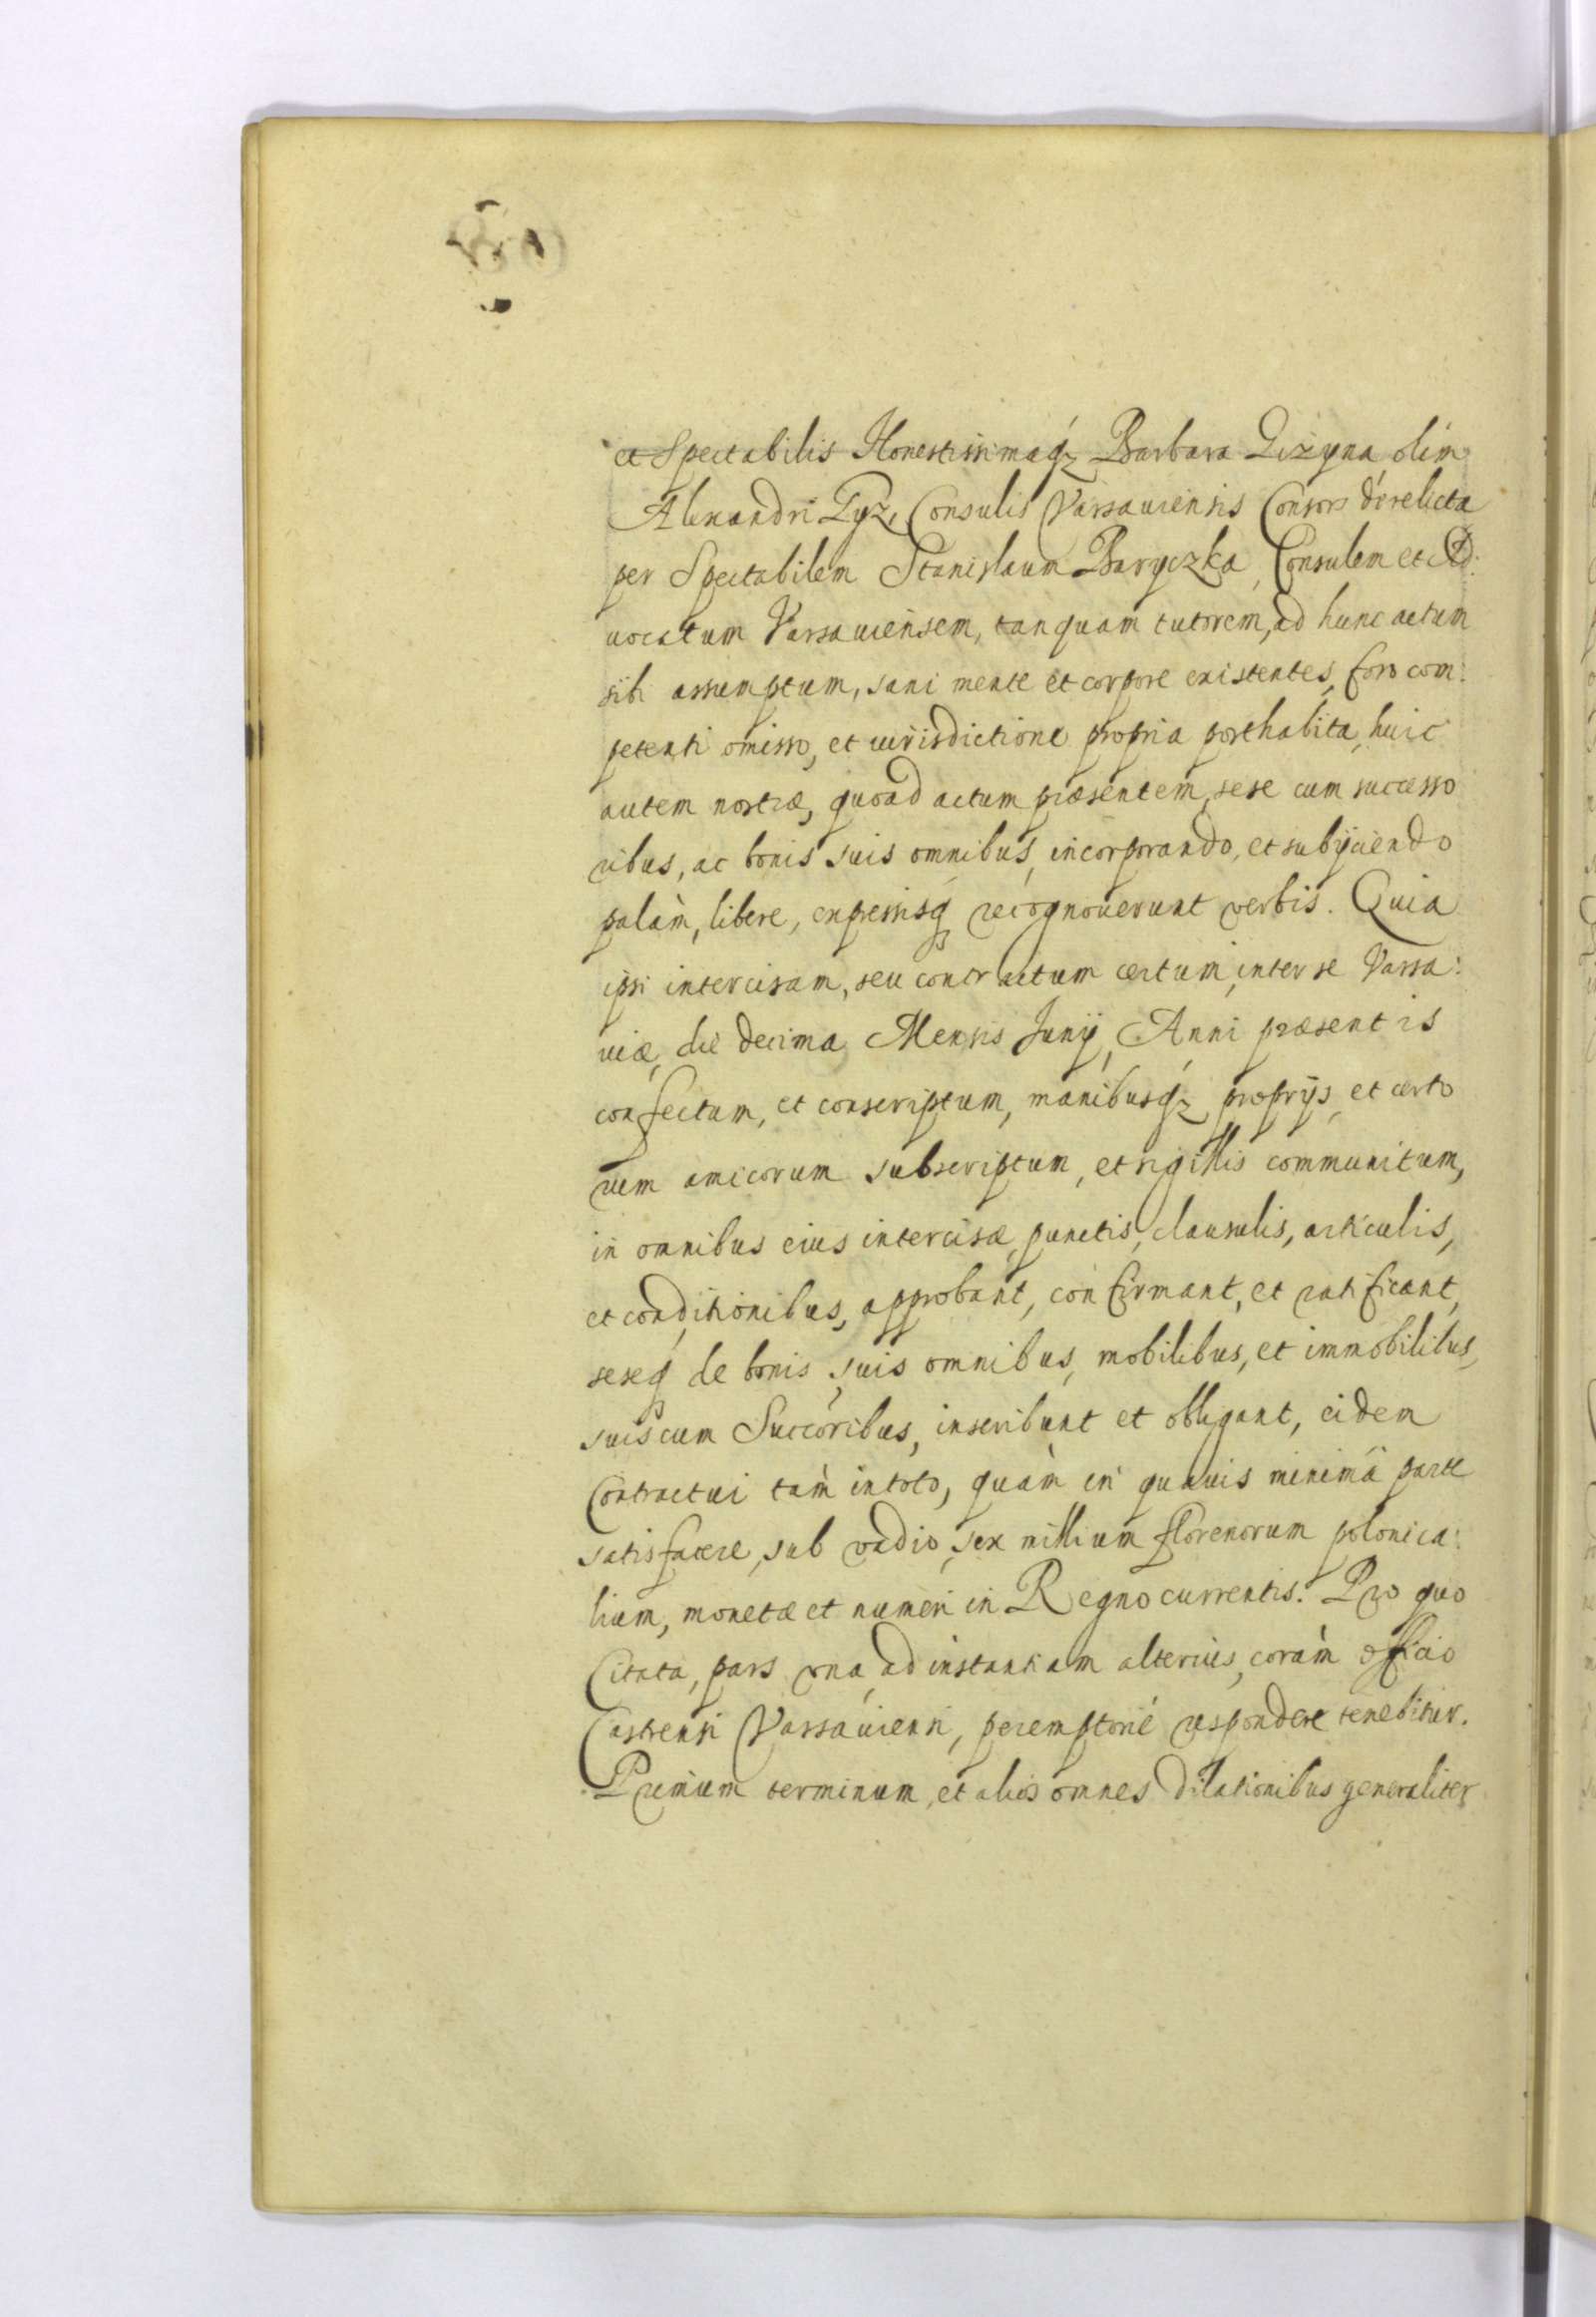 et Spectabilis Honestissimaq₃ Barbara Gizyna olim
Alexandri Gyz, Consulis Varsauiensis Consors derelicta
per Spectabilem Stanislaum Baryczka, Consulem et Ad:
uocatum Varsauiensem, tanquam tutorem, ad hunc actum
sibi assumptum, sani mente et corpore existentes, foro com:
petenti omisso, et iurisdictione propria posthabita, huic
autem nostræ, quoad actum præsentem, sese cum successo
ribus, ac bonis suis omnibus, incorporando, et subijciendo
palàm, libere, expressisq₃ recognouerunt verbis. Quia
ipsi intercisam, seu contractum certum, inter se Varsa:
uiæ, die decima Mensis Junij, Anni præsentis
confectum, et conscriptum, manibusq₃ proprijs, et certo
rum amicorum subscriptum, et sigillis communitum,
in omnibus eius intercisæ, punctis, clausulis, articulis,
et conditionibus, approbant, confirmant, et ratificant,
seseq₃ de bonis suis omnibus, mobilibus, et immobilibus,
suis cum Succoribus, inscribunt et obligant, eidem
Contractui tàm in toto, quàm in quauis minimâ parte
satisfacere, sub vadio, sex millium florenorum polonica:
lium, monetæ et numeri in Regno currentis. Pro quo
Citata, pars vna, ad instantiam alterius, coràm officio
Castrensi Varsauiensi, peremptoriè respondere tenebitur.
Primum terminum, et alios omnes dilationibus generaliter